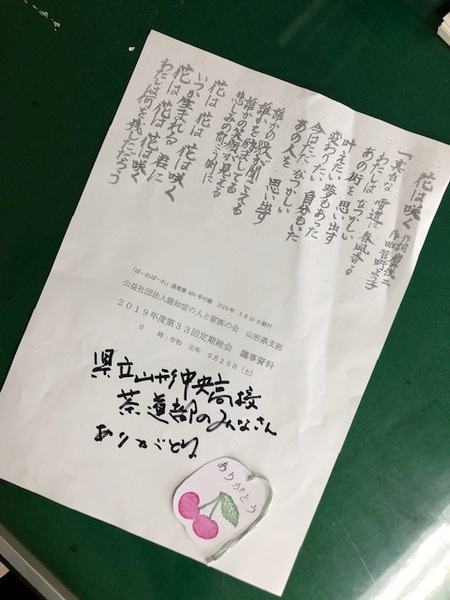 花は咲く 作詞 岩井俊二
作曲 菅野よう子
「真白な 雪道に 春風香る
わたしは なつかしい
あの街を 思い出す
叶えたい 夢もあった
変わりたい 自分もいた
今はただ なつかしい
あの人を 思い出す
誰かの歌が聞こえる
誰かを励ましてる
誰かの笑顔が見える
悲しみの向こう側に
花は 花は 花は咲く
いつか生まれる君に
花は 花は 花は咲く
わたしは何を残しただろう
「ぽーれぽーれ」通巻第 号付録 2019年 5月25日発行
公益社団法人認知症の人と家族の会 山形県支部
2019年度第33回定期総会 議事資料
日 時:令和 元年 5月25日(土)
県立山形中央高校
茶道部のみなさん
ありがとう
ありがとう